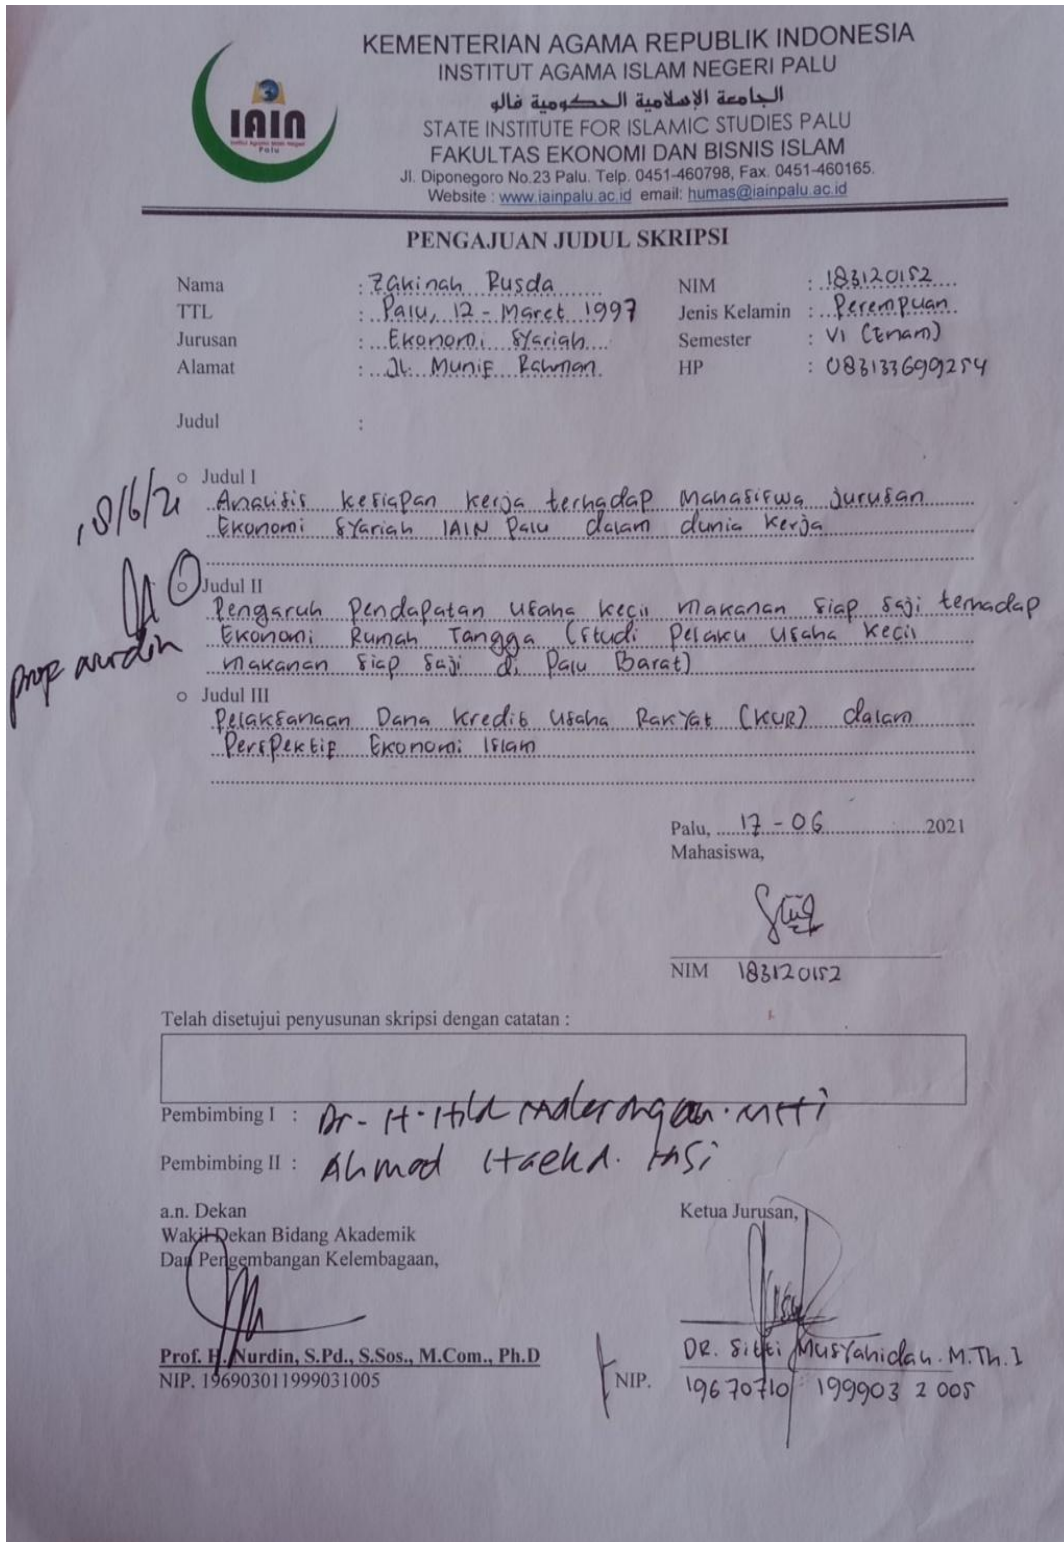 KEMENTERIAN AGAMA REPUBLIK INDONESIA
INSTITUT AGAMA ISLAM NEGERI PALU
الجامعة الإسلامية الحكومية فالو
STATE INSTITUTE FOR ISLAMIC STUDIES PALU
FAKULTAS EKONOMI DAN BISNIS ISLAM
Jl. Diponegoro No.23 Palu. Telp. 0451-460798, Fax. 0451-460165.
Website : www.iainpalu.ac.id email: humas@iainpalu.ac.id
IAIN
Palu
PENGAJUAN JUDUL SKRIPSI
Nama : Zakinah Rusda NIM : 183120152
TTL : Palu, 12 - Maret 1997 Jenis Kelamin : Perempuan
Jurusan : Ekonomi Syariah Semester : VI (Enam)
Alamat : Jl. Munif Rahman HP : 083133699254
Judul :
Judul I
18/6/21
Analisis kesiapan kerja terhadap Mahasiswa jurusan
Ekonomi Syariah IAIN Palu dalam dunia kerja
Judul II
Pengaruh Pendapatan usaha kecil makanan siap saji terhadap
Ekonomi Rumah Tangga (studi pelaku usaha kecil
makanan siap saji di Palu Barat)
prof nurdin
Judul III
Pelaksanaan Dana Kredit Usaha Rakyat (KUR) dalam
Perspektif Ekonomi Islam
Palu, 17 - 06 2021
Mahasiswa,
NIM 183120152
Telah disetujui penyusunan skripsi dengan catatan :
Pembimbing I : Dr. H. Hilal Malarangan. MHI
Pembimbing II : Ahmad Haekal. MSi
a.n. Dekan Ketua Jurusan,
Wakil Dekan Bidang Akademik
Dan Pengembangan Kelembagaan,
Prof. H. Nurdin, S.Pd., S.Sos., M.Com., Ph.D
NIP. 196903011999031005
DR. Sitti Musyahidah. M.Th.I
NIP. 19670710 199903 2 005